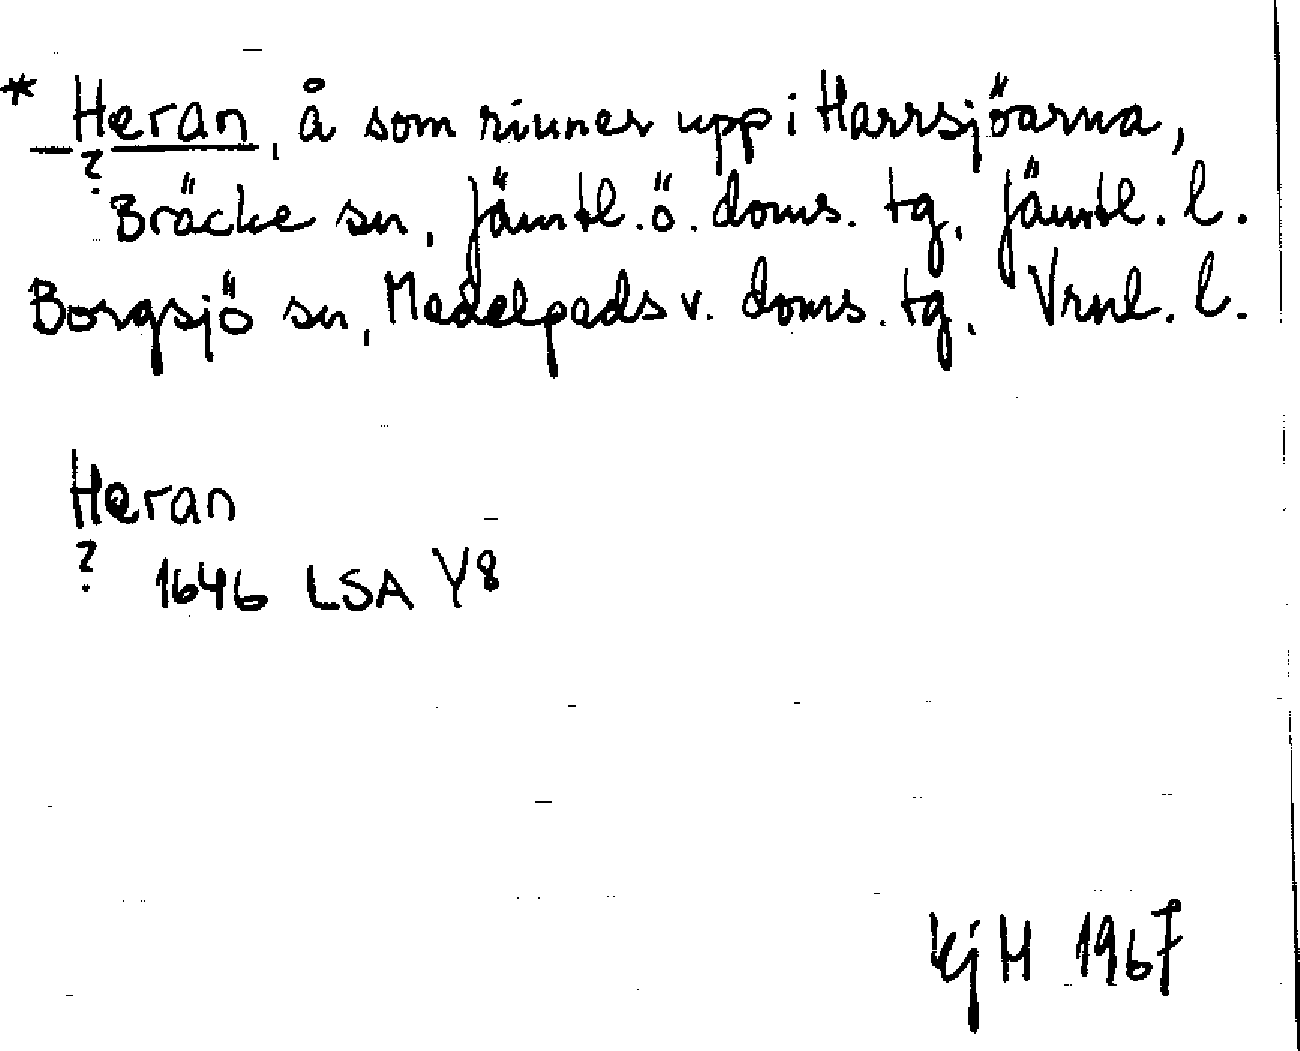 * Heran, å som rinner upp i Harrsjöarna,
?
Bräcke sn, Jämtl. ö. doms. tg, Jämtl. l.
Borgsjö sn, Medelpads v. doms. tg, Vrnl. l.
Heran
?
1646 LSA Y8
KjH 1967